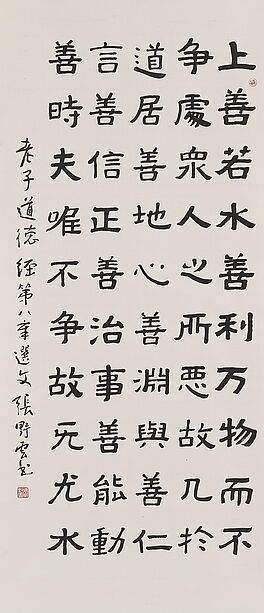 上善若水善利万物而不
争處衆人之所悪故几於
道居善地心善淵與善仁
言善信正善治事善能動
善時夫唯不争故无尤水
老子道德經第八章選文 張野雲书